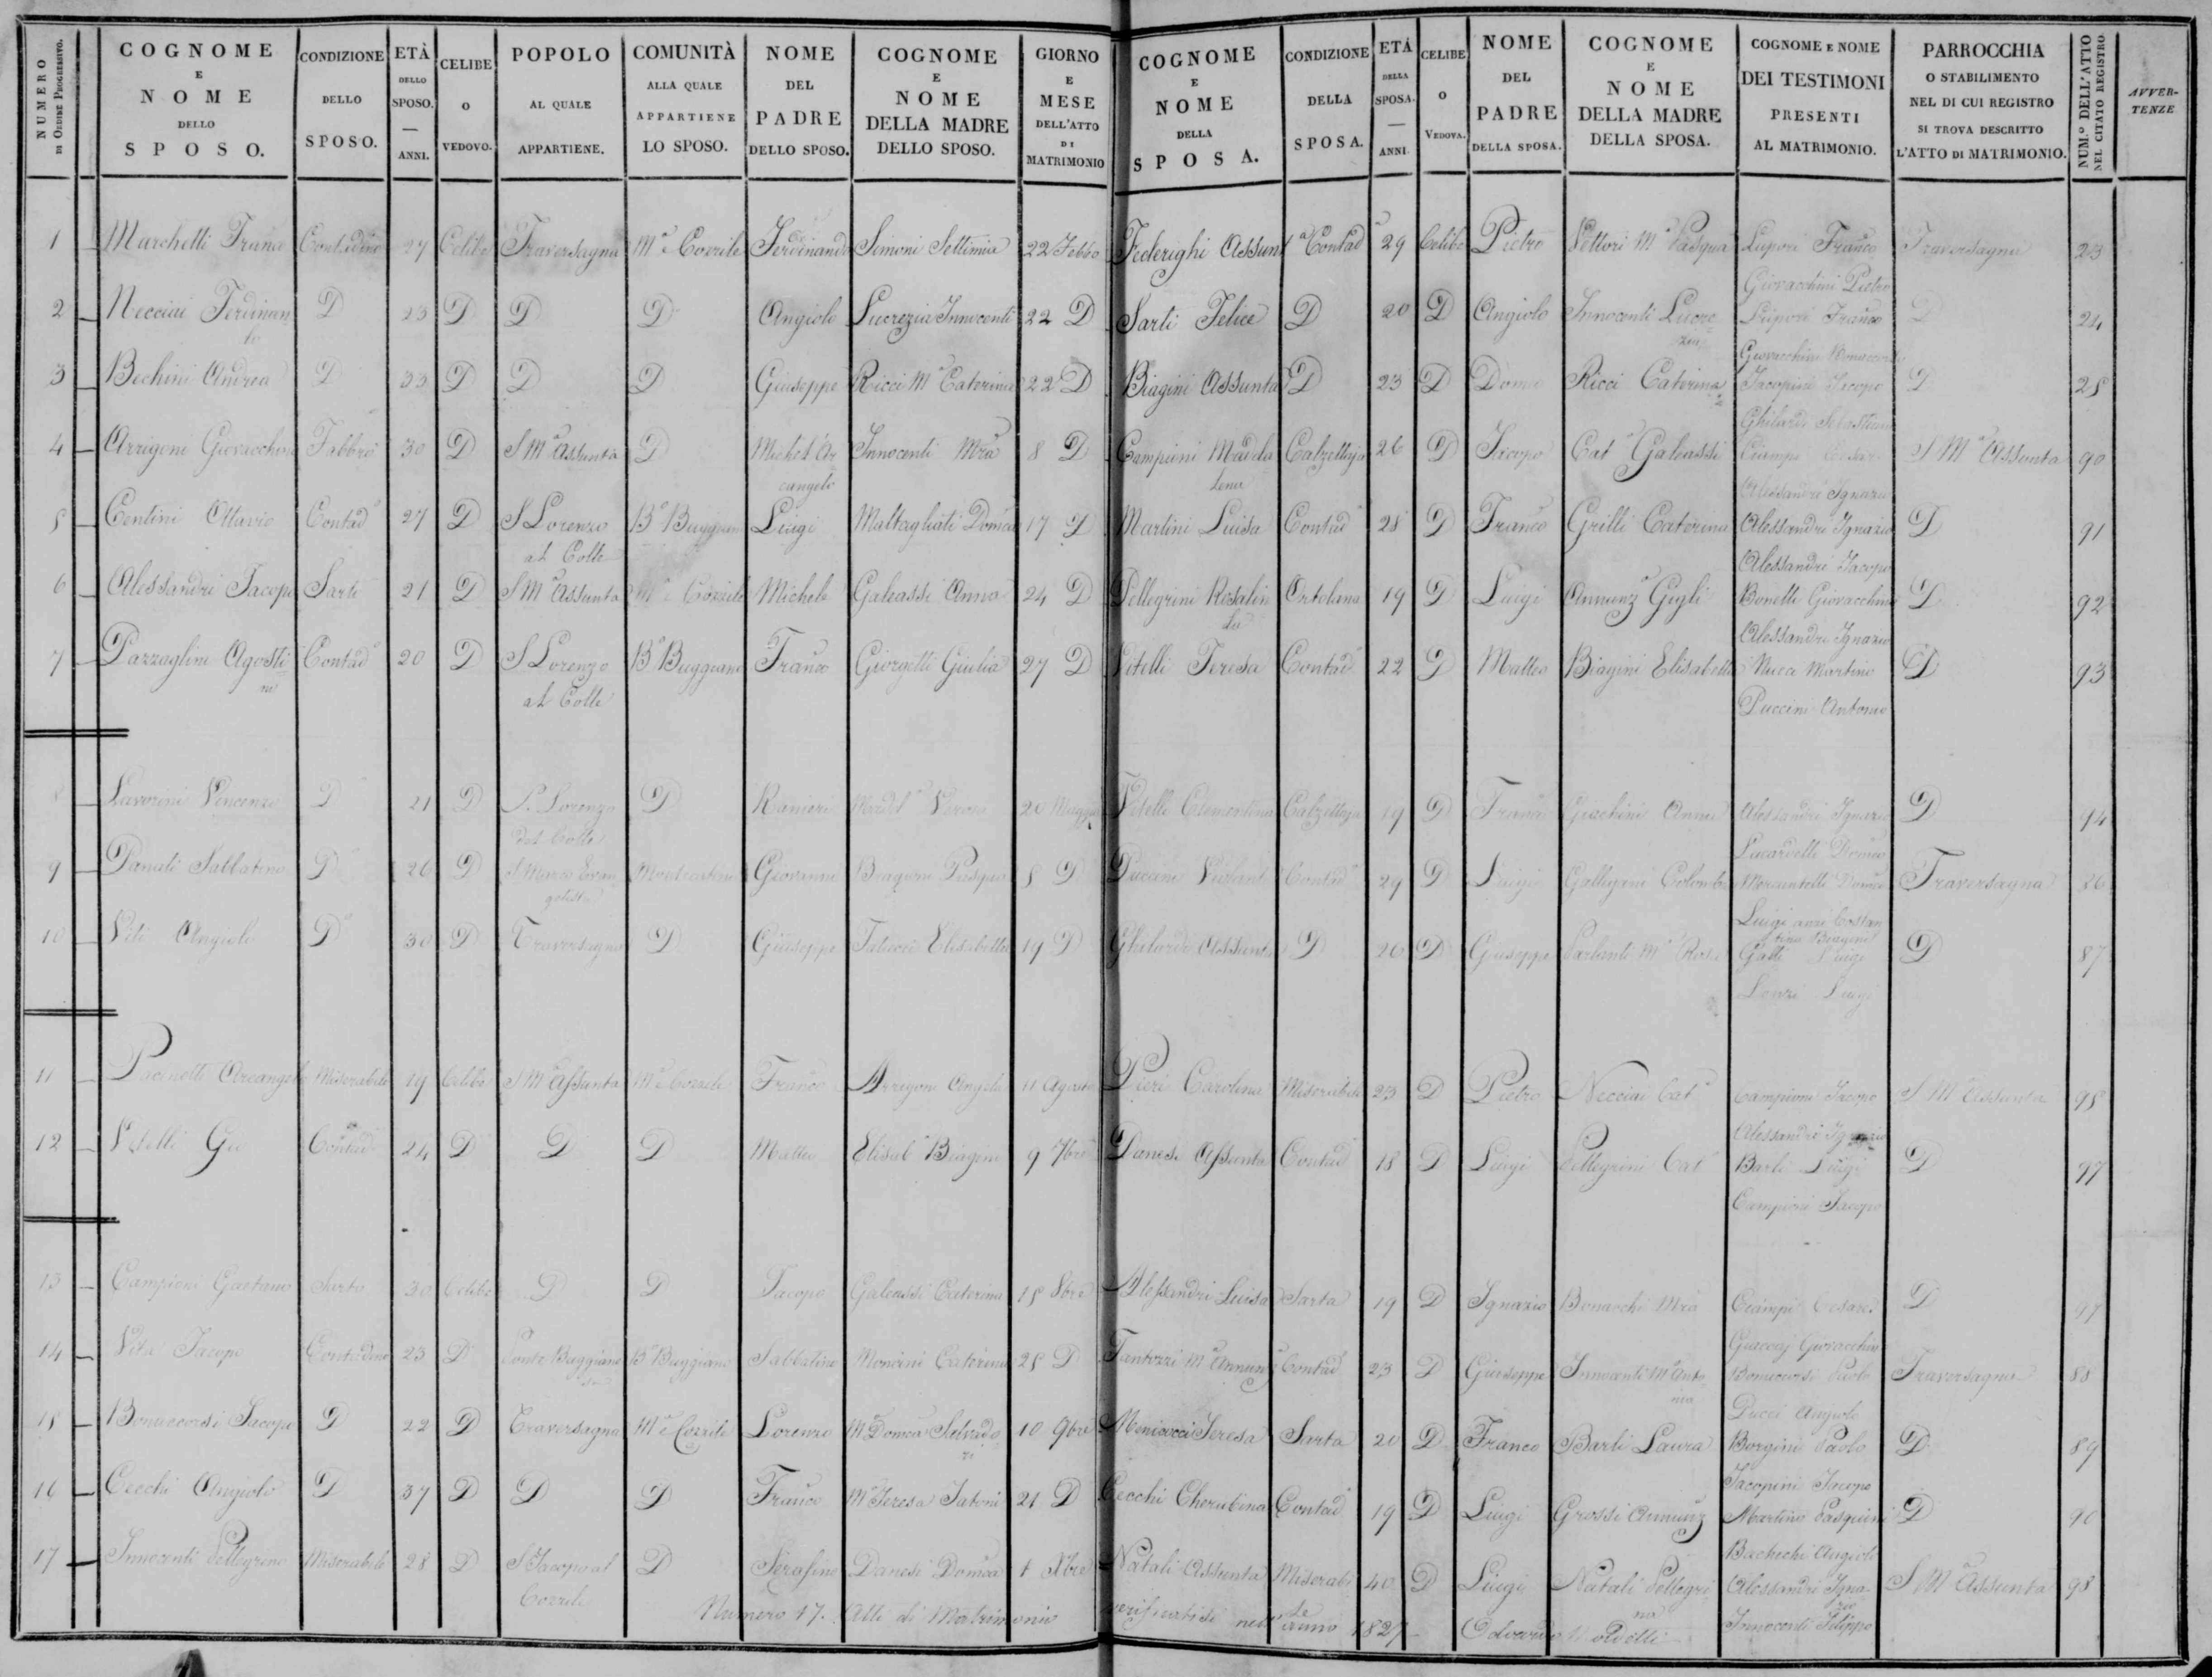 NUMERO DI ORDINE PROGRESSIVO.
COGNOME E NOME DELLO SPOSO.
CONDIZIONE DELLO SPOSO.
ETÀ DELLO SPOSO. — ANNI.
CELIBE O VEDOVO.
POPOLO AL QUALE APPARTIENE.
COMUNITÀ ALLA QUALE APPARTIENE LO SPOSO.
NOME DEL PADRE DELLO SPOSO.
COGNOME E NOME DELLA MADRE DELLO SPOSO.
GIORNO E MESE DELL'ATTO DI MATRIMONIO
COGNOME E NOME DELLA SPOSA.
CONDIZIONE DELLA SPOSA.
ETÀ DELLA SPOSA. — ANNI.
CELIBE O VEDOVA.
NOME DEL PADRE DELLA SPOSA.
COGNOME E NOME DELLA MADRE DELLA SPOSA.
COGNOME E NOME DEI TESTIMONI PRESENTI AL MATRIMONIO.
PARROCCHIA O STABILIMENTO NEL DI CUI REGISTRO SI TROVA DESCRITTO L'ATTO DI MATRIMONIO.
NUM.º DELL'ATTO NEL CITATO REGISTRO
AVVERTENZE
1 Marchetti Franco Contadino 27 Celibe Traversagna Mª e Cozzile Ferdinando Simoni Settimia 22 Febbo Federighi Assunta Contad 29 Celibe Pietro Vettori Mª Pasqua Lupori Franco Traversagna 23
Giovacchini Pietro
2 Necciai Ferdinando D 23 D D D Angiolo Lucrezia Innocenti 22 D Sarti Felice D 20 D Angiolo Innocenti Lucrezia Lupori Franco D 24
Giovacchini Bonaccorsi
3 Bechini Andrea D 33 D D D Giuseppe Ricci Mª Caterina 22 D Biagini Assunta D 23 D Domco Ricci Caterina Jacopini Jacopo D 25
Ghilardi Sebastiano
4 Arrigoni Giovacchino Fabbro 30 D S Mª Assunta D Michel Arcangelo Innocenti Mria 8 D Campioni Maddalena Calzettaja 26 D Jacopo Catª Galeassi Ciampi Cesare S Mª Assunta 90
Alessandri Ignazio
5 Centini Ottavio Contadº 27 D S Lorenzo al Colle Bº Buggiano Luigi Maltagliati Domca 17 D Martini Luisa Contad 28 D Franco Grilli Caterina Alessandri Ignazio D 91
Alessandri Jacopo
6 Alessandri Jacopo Sarto 21 D S Mª Assunta Mª e Cozzile Michele Galeassi Anna 24 D Pellegrini Rosalinda Ortolana 19 D Luigi Annunzª Gigli Bonelli Giovacchino D 92
Alessandri Ignazio
7 Pazzaglini Agostino Contadº 20 D S Lorenzo al Colle Bº Buggiano Franco Giorgetti Giulia 27 D Vitelli Teresa Contad 22 D Matteo Biagini Elisabetta Nucci Martino D 93
Puccini Antonio
8 Lavorini Vincenzo D 21 D S. Lorenzo del Colle D Ranieri Maddª Veroni 20 Maggio Vitelli Clementina Calzettaja 19 D Franco Giachini Anna Alessandri Ignazio D 94
Lucardelli Domco
9 Donati Sabbatino D 26 D S Marco Evangelista Montecatini Giovanni Biagioni Pasqua 8 D Puccini Violante Contad 29 D Luigi Galligani Colomba Mercantelli Domco Traversagna 86
Luigi anzi Costantino Biagini
10 Viti Angiolo D 30 D Traversagna D Giuseppe Elisabetta 19 D Ghilardi Assunta D 20 D Giuseppe Parlanti Mª Rosa Galli Luigi D 87
Lenzi Luigi
11 Pacinotti Arcangelo Miserabile 19 Celibe S Mª Assunta Mª e Cozzile Franco Arrigoni Angela 11 Agosto Pieri Carolina Miserabile 23 D Pietro Necciai Catª Campioni Jacopo S Mª Assunta 95
Alessandri Ignazio
12 Vitelli Gio Contad 24 D D D Matteo Elisabª Biagini 9 7bre Danesi Assunta Contad 18 D Luigi Pellegrini Catª Barli Luigi D 97
Campioni Jacopo
13 Campioni Gaetano Sarto 30 Celibe D D Jacopo Galeassi Caterina 15 8bre Alessandri Luisa Sarta 19 D Ignazio Bonacchi Mria Ciampi Cesare D 97
Giovacchino
14 Vita Jacopo Contadino 23 D Ponte Buggianese Bº Buggiano Sabbatino Moncini Caterina 25 D Fantozzi Mª Annunzª Contad 23 D Giuseppe Innocenti Mª Antonia Bonaccorsi Paolo Traversagna 88
Ducci Angiolo
15 Bonaccorsi Jacopo D 22 D Traversagna Mª e Cozzile Lorenzo Mª Domca Salvadori 10 9bre Menicucci Teresa Sarta 20 D Franco Barli Laura Borgini Paolo D 89
Jacopini Jacopo
16 Cecchi Angiolo D 37 D D D Franco Mª Teresa 21 D Cecchi Cherubina Contad 19 D Luigi Grossi Annunz Martino Pasquini D 90
Bachechi Angiolo
17 Innocenti Pellegrino Miserabile 28 D S Jacopo al Cozzile D Serafino Danesi Domca 1 Xbre Natali Assunta Miserabile 40 D Luigi Natali Pellegrina Alessandri Ignazio S Mª Assunta 98
Innocenti Filippo
Numero 17. Atti di Matrimonio verificatisi nell' anno 1827